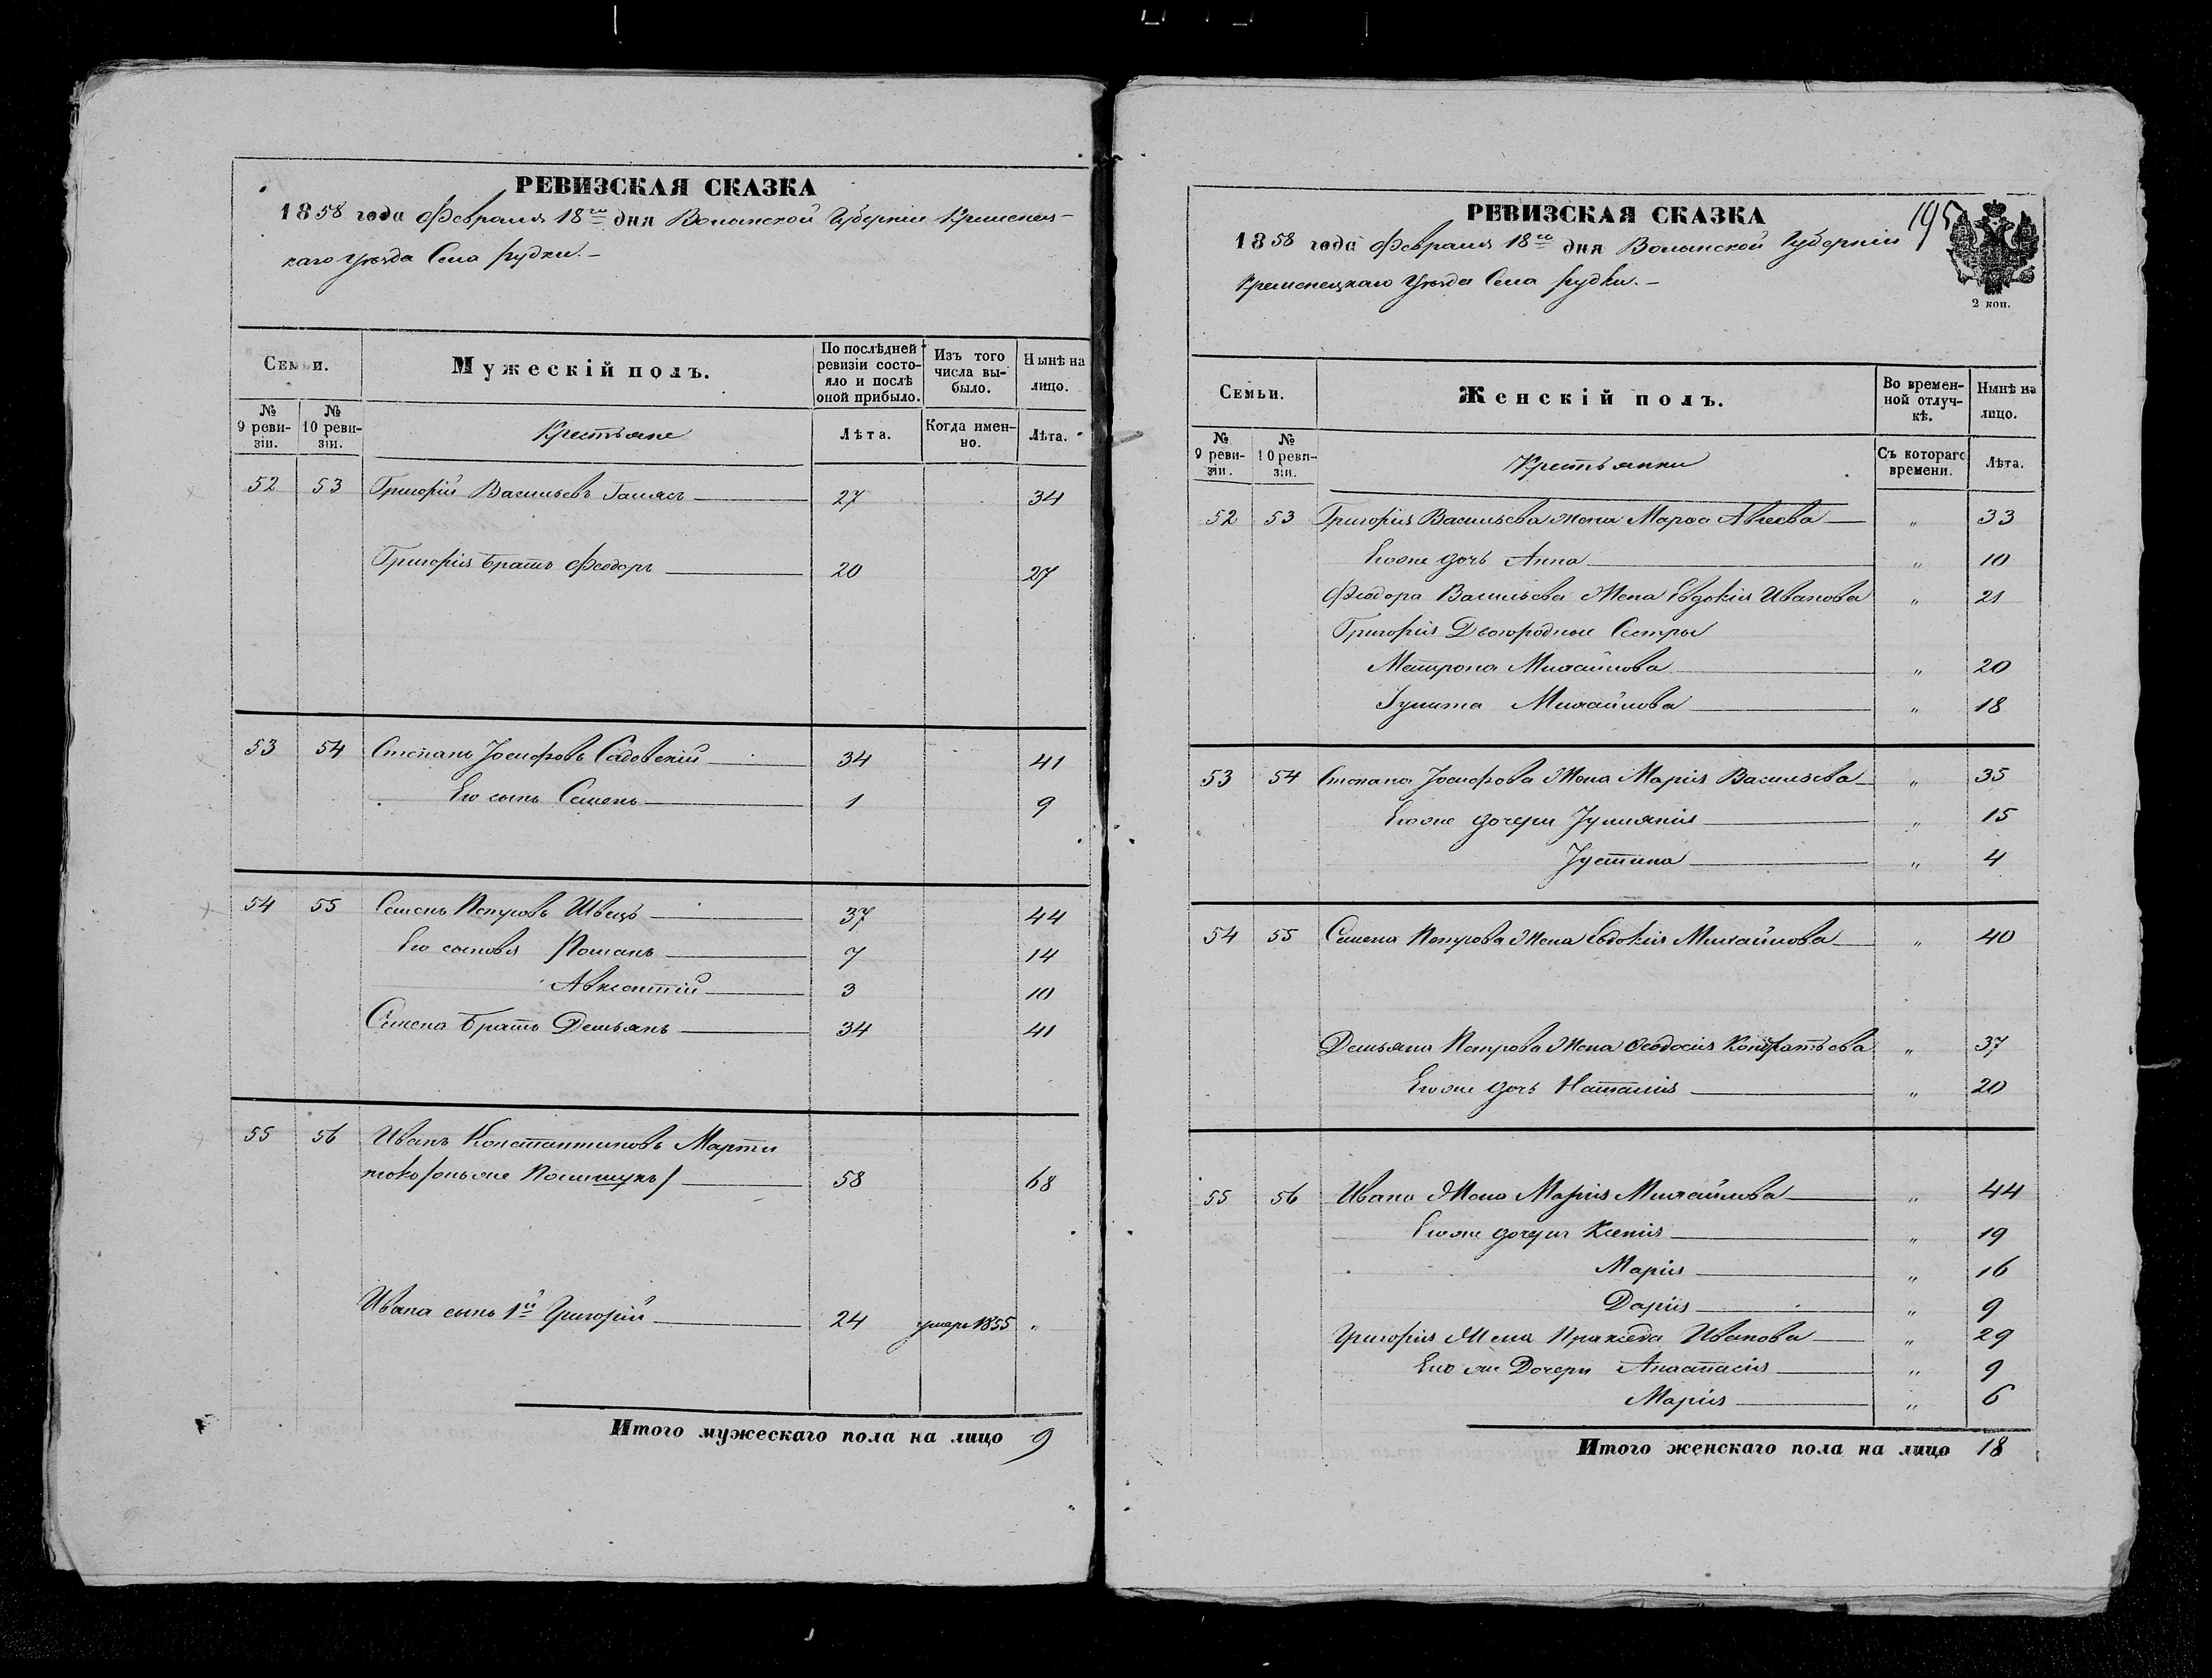 РЕВИЗСКАЯ СКАЗКА
1858 года Февраля 18го дня Волынской Губерніи Кременец-
каго Уѣзда Села Рудки. –
Семьи.
Мужескій полъ.
По послѣдней ревизіи состо-яло и послѣ оной прибыло.
Изъ того числа вы-было.
Нынѣ на лицо.
№ 9 реви-зіи.
№ 10 реви-зіи.
Крестьяне
Лѣта.
Когда имен-но.
Лѣта.
52 53 Григорій Васильевъ 27 34
Григорія братъ Феодоръ 20 27
53 54 Степанъ Іосифовъ Садовскій 34 41
Его сынъ Семенъ 1 9
54 55 Семенъ Петровъ Швецъ 37 44
Его сыновья Романъ 7 14
Авксентій 3 10
Семена братъ Демьянъ 34 41
55 56 Иванъ Константиновъ Марти
нюкъ /онъ же Полищукъ/ 58 68
Ивана сынъ 1й Григорій 24 умеръ 1855 „
Итого мужескаго пола на лицо 9
РЕВИЗСКАЯ СКАЗКА
195
1858 года Февраля 18го дня Волынской Губерніи
Кременецкаго Уѣзда Села Рудки. –
2 коп.
Семьи.
Женскій полъ.
Во времен-ной отлуч-кѣ.
Нынѣ на лицо.
№ 9 реви-зіи.
№ 10 реви-зіи.
Крестьянки
Съ котораго времени.
Лѣта.
52 53 Григорія Васильева жена Марѳа „ 33
Его же дочь Анна „ 10
Феодора Васильева жена Евдокія Иванова „ 21
Григорія Двоюродные Сестры
Матрона Михайлова „ 20
Іулита Михайлова „ 18
53 54 Степана Іосифова жена Марія Васильева „ 35
Его же дочери Іуліанія „ 15
Іустина „ 4
54 55 Семена Петрова жена Евдокія Михайлова „ 40
Демьяна Петрова жена Ѳеодосія Кондратьева „ 37
Его же дочь Наталія „ 20
55 56 Ивана жена Марія Михайлова „ 44
Его же дочери Ксенія „ 19
Марія „ 16
Дарія „ 9
Григорія жена Праксѣда Иванова „ 29
Его же Дочери Анастасія „ 9
Марія „ 6
Итого женскаго пола на лицо 18